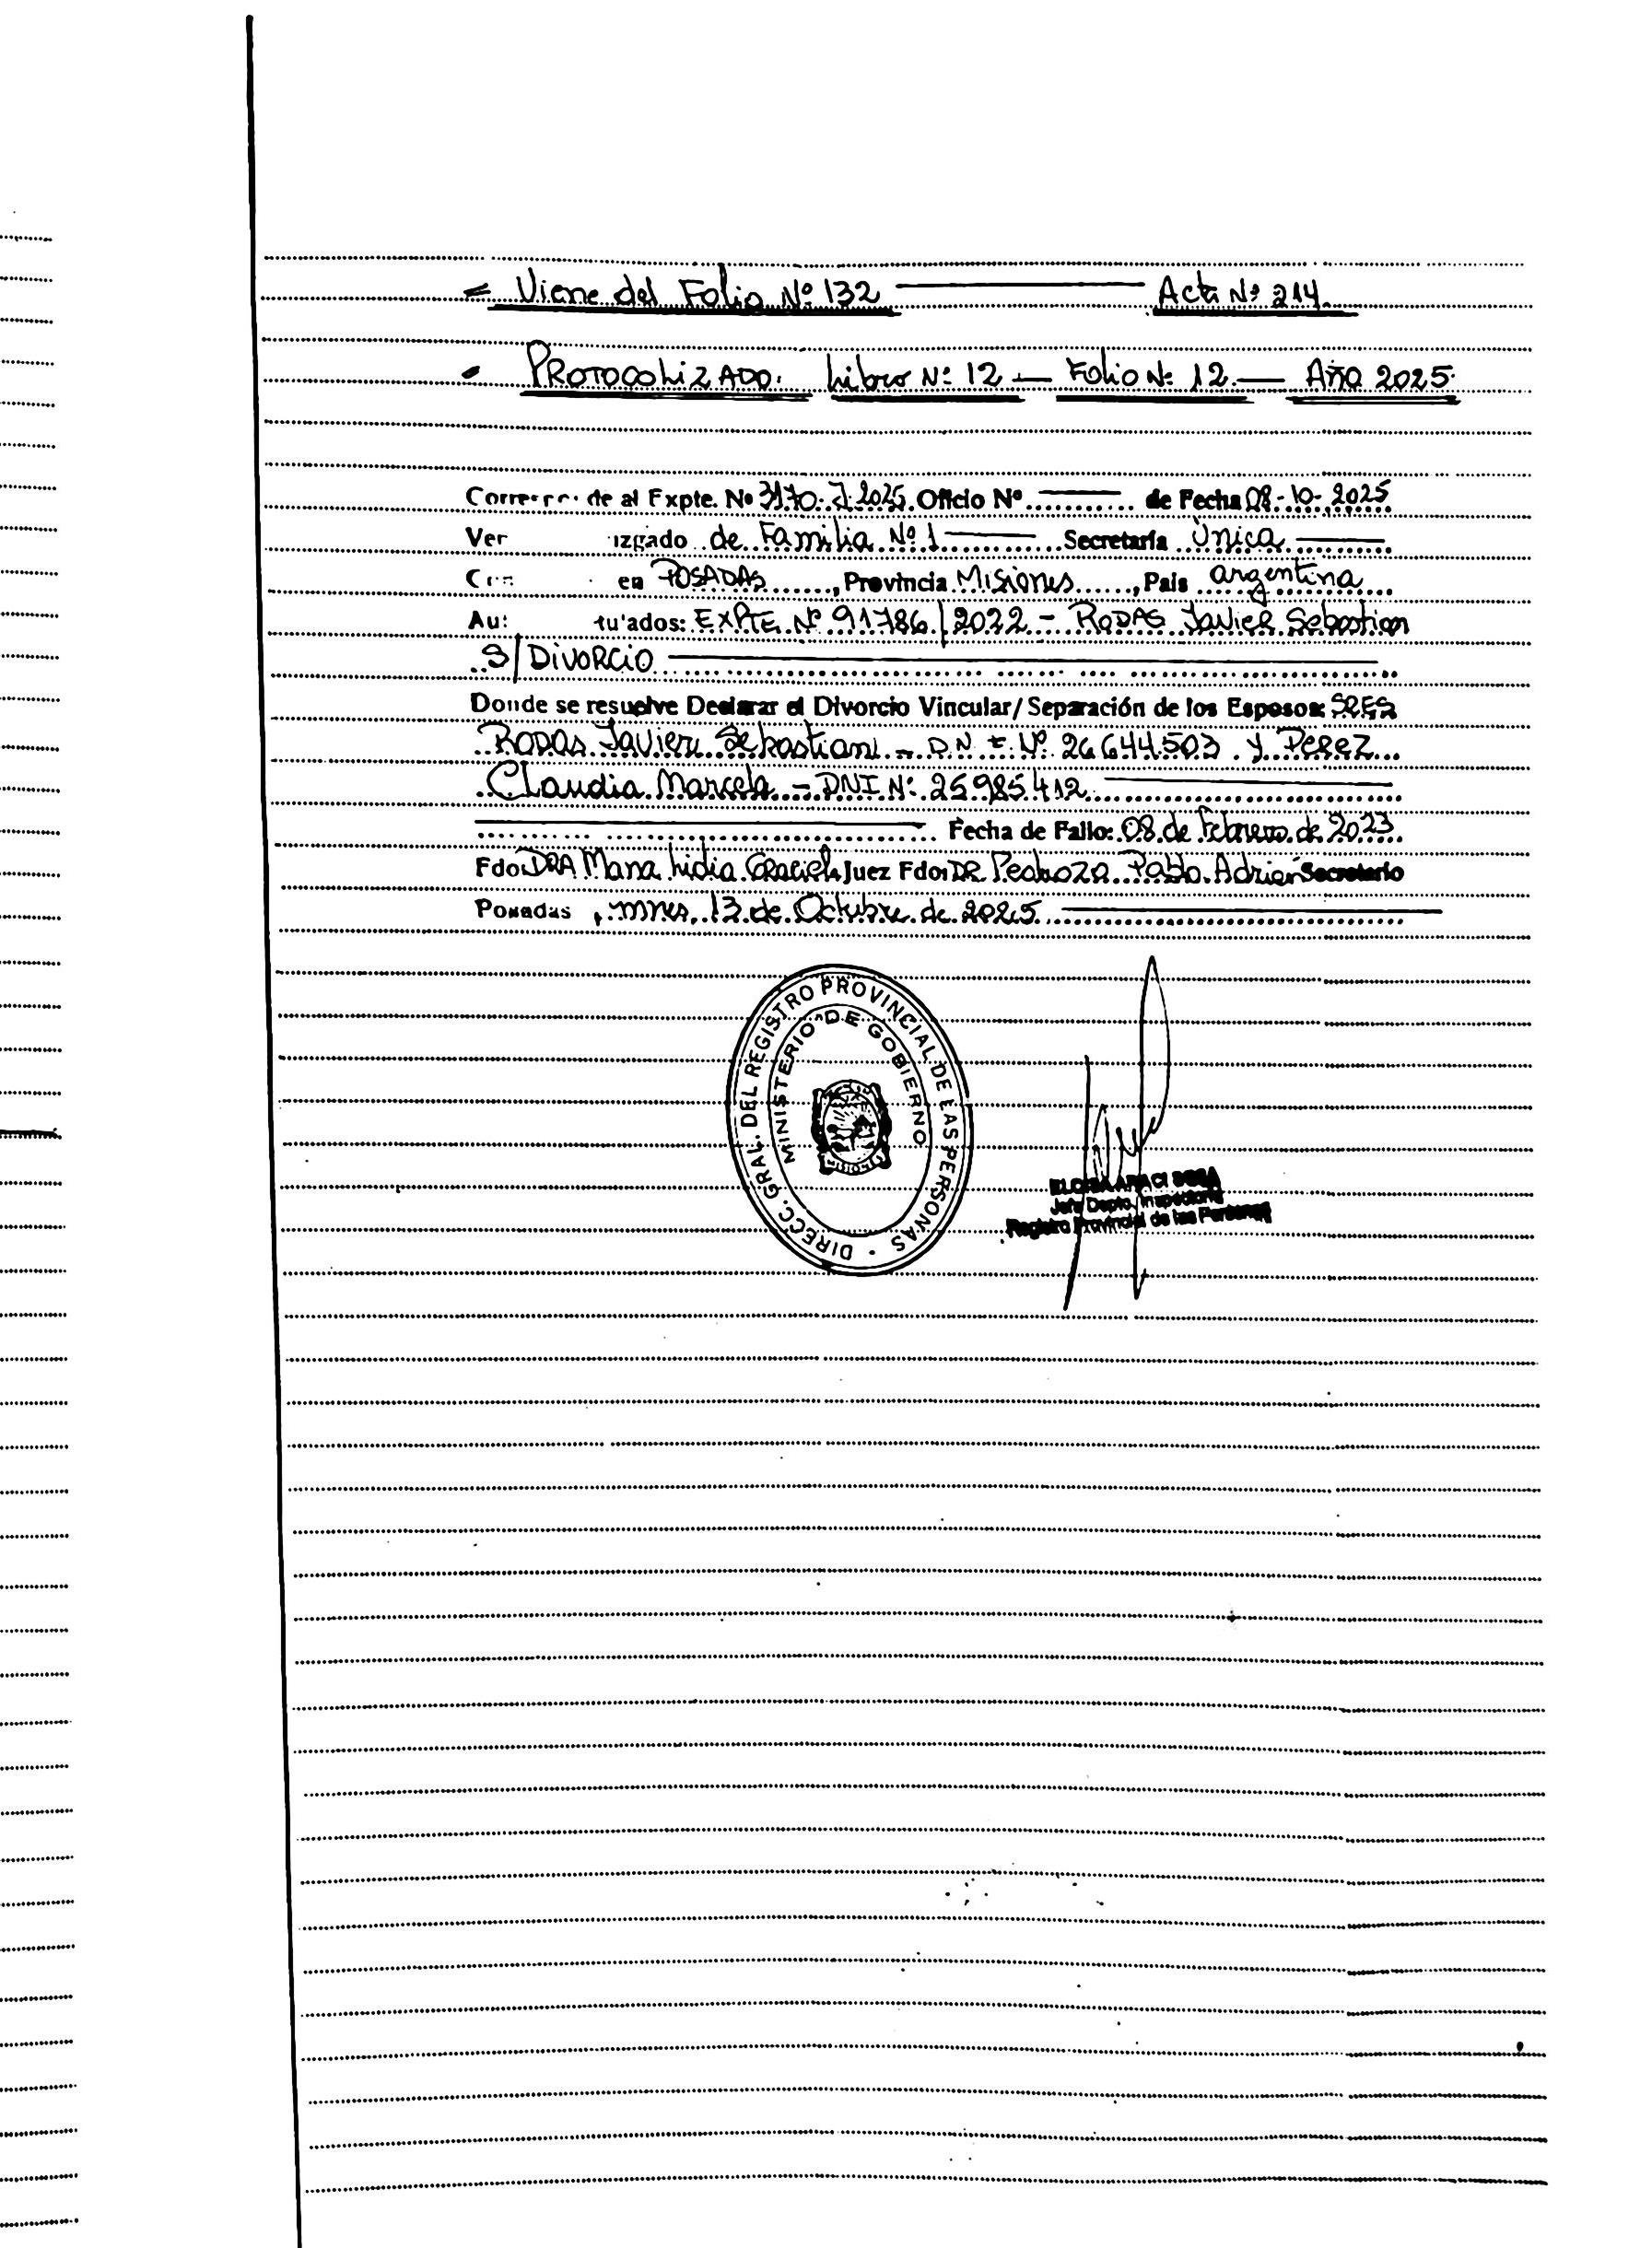 = Viene del Folio Nº 132 — Acta Nº 214.
• PROTOCOLIZADO. Libro Nº 12 — Folio Nº 12 — Año 2025.
de al Expte. Nº 3170. J. 2025. Oficio Nº ——— de Fecha 08-10-2025
Ver izgado de Familia Nº 1 ——— Secretaría Única ———
en POSADAS, Provincia Misiones, País argentina
Au: tu'ados: EXPTE Nº 91786/2022 - RODAS Javier Sebastian
S/ DIVORCIO ———
Donde se resuelve Declarar el Divorcio Vincular/Separación de los Esposos: SRES
RODAS Javier Sebastian - D.N.I. Nº 26644.503 y Perez
Claudia Marcela - DNI Nº 25985412
——— Fecha de Fallo: 08 de Febrero de 2023.
Fdo: DRA Maria Lidia Graciela Juez Fdo: DR Pedroza Pablo Adrian Secretario
Posadas, mnes, 13 de Octubre de 2025 ———
DIRECC. GRAL. DEL REGISTRO PROVINCIAL DE LAS PERSONAS
MINISTERIO DE GOBIERNO
Jefe Depto. Inspectoria
Registro Provincial de las Personas